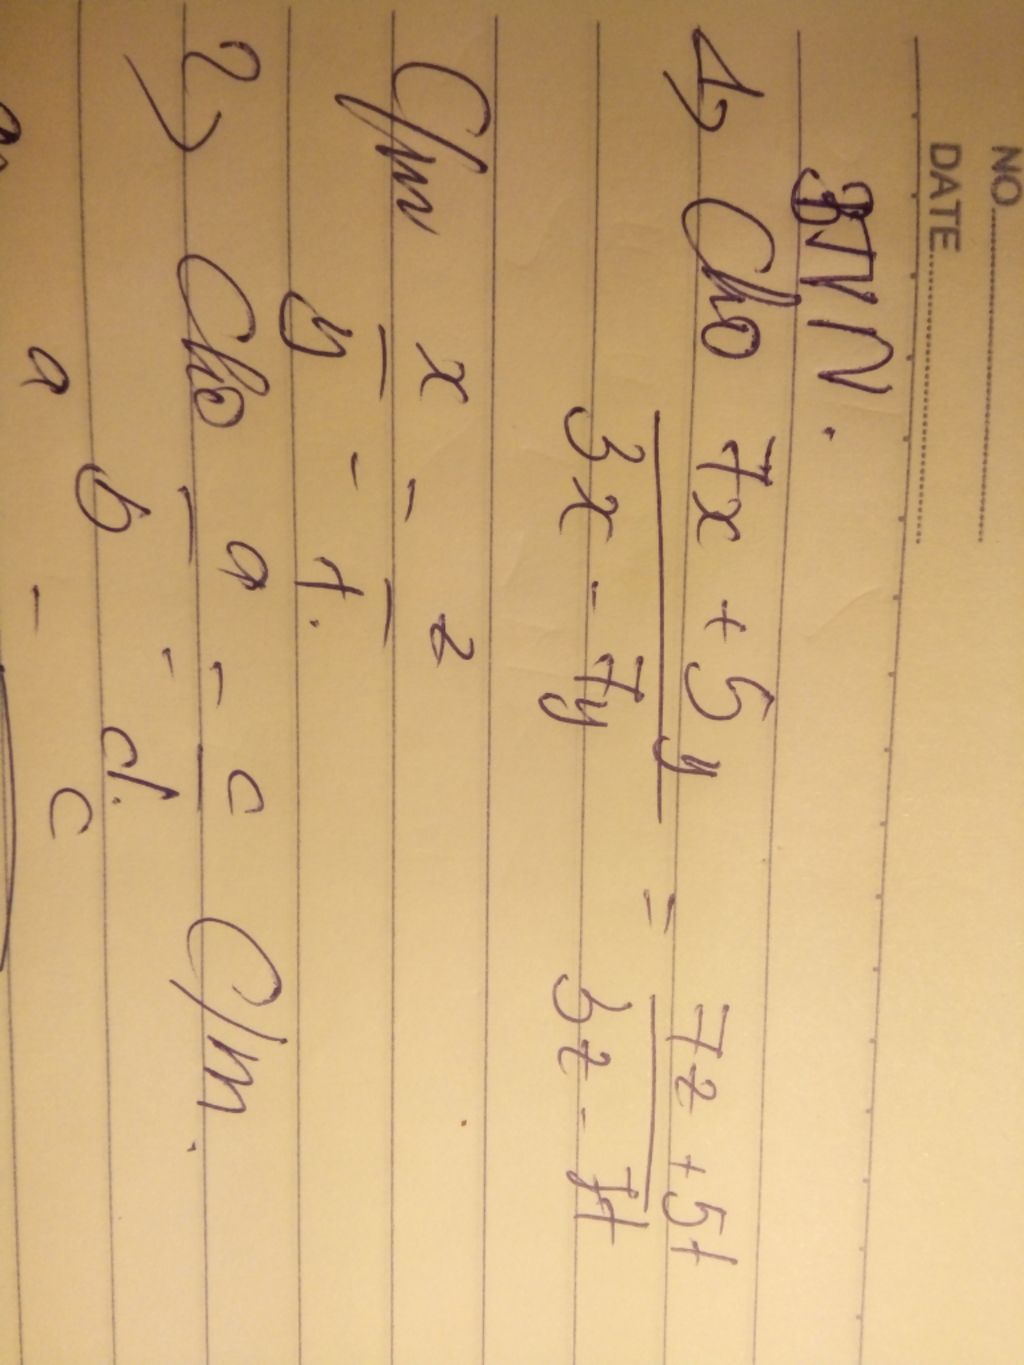 NO.
DATE
BTVN.
1, Cho 7x + 5y / 3x - 7y = 7z + 5t / 3z - 7t
C/m x/y = z/t.
2, Cho a/b = c/d. C/m.
a = c